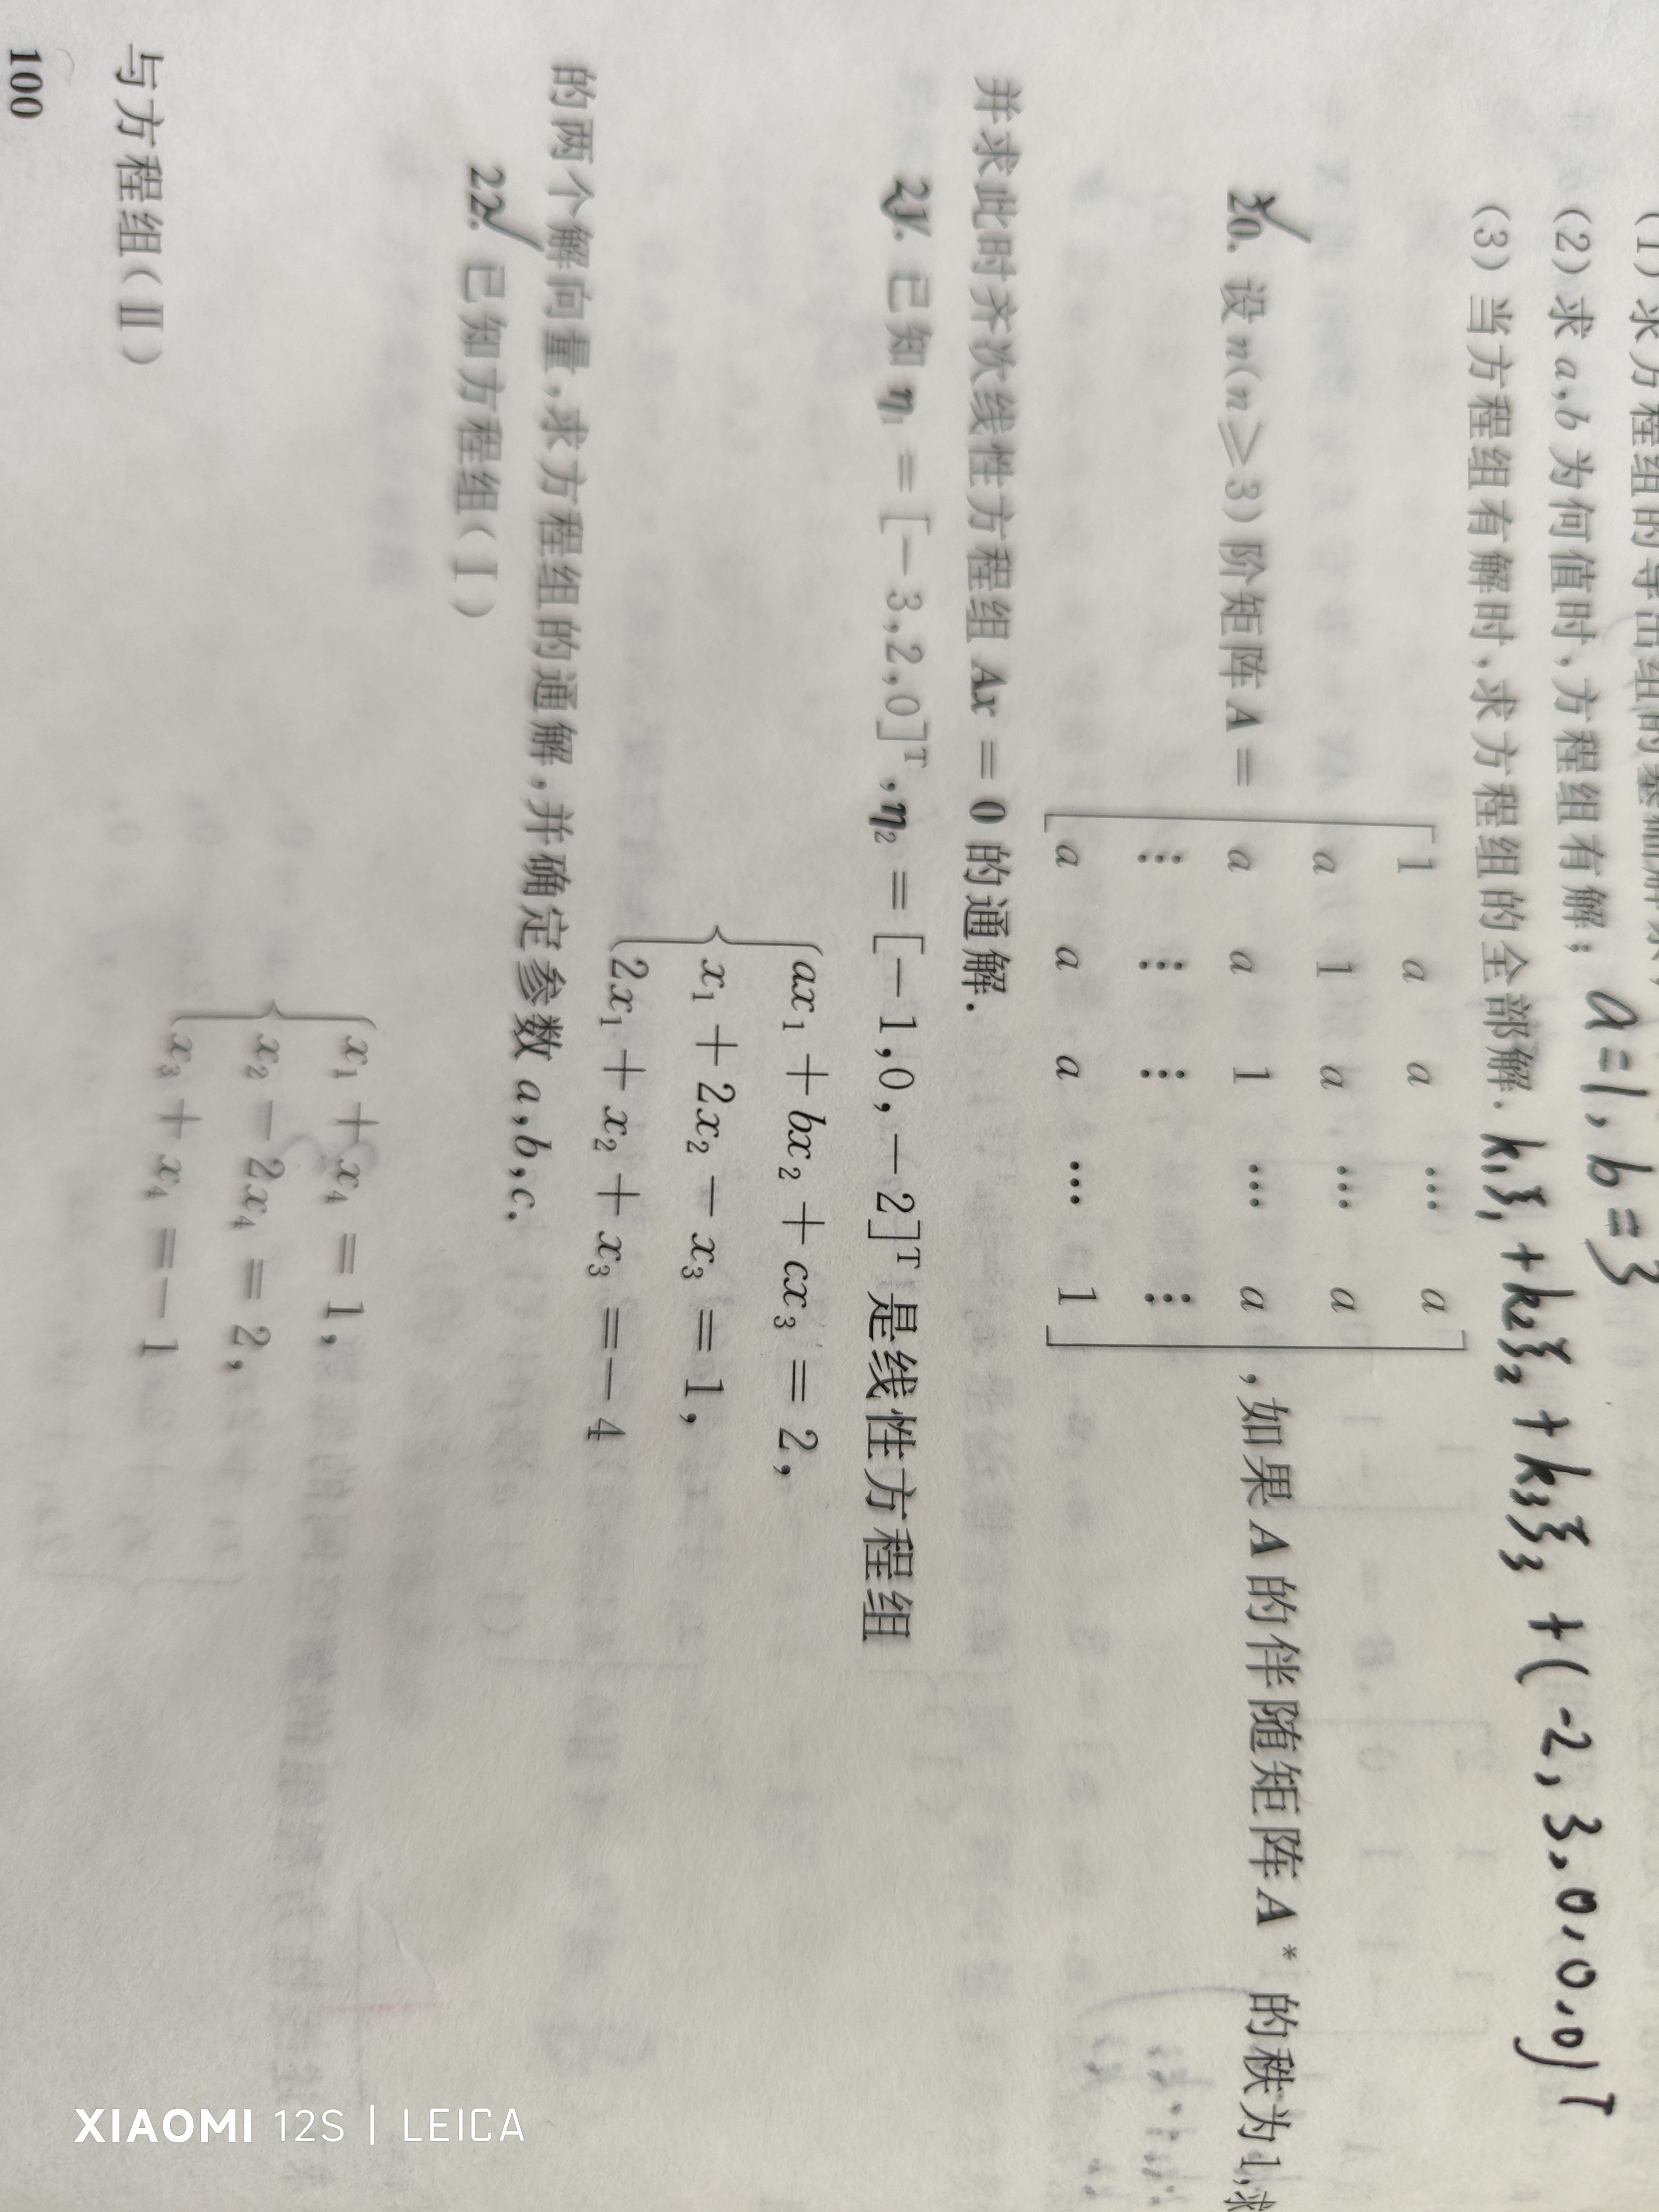 (2) 求 a,b 为何值时,方程组有解; a=1, b=3
(3) 当方程组有解时,求方程组的全部解. k₁ξ₁ + k₂ξ₂ + k₃ξ₃ + (-2, 3, 0, 0, 0)ᵀ
20. 设 n(n≥3) 阶矩阵 A = ,如果 A 的伴随矩阵 A* 的秩为1,求
[1 a a … a
a 1 a … a
a a 1 … a
⋮ ⋮ ⋮ ⋮
a a a … 1]
并求此时齐次线性方程组 Ax = 0 的通解.
21. 已知 η₁ = [−3,2,0]ᵀ,η₂ = [−1,0,−2]ᵀ 是线性方程组
ax₁ + bx₂ + cx₃ = 2,
x₁ + 2x₂ − x₃ = 1,
2x₁ + x₂ + x₃ = −4
的两个解向量,求方程组的通解,并确定参数 a,b,c.
22. 已知方程组(Ⅰ)
x₁ + x₄ = 1,
x₂ − 2x₄ = 2,
x₃ + x₄ = −1
与方程组(Ⅱ)
100
XIAOMI 12S | LEICA